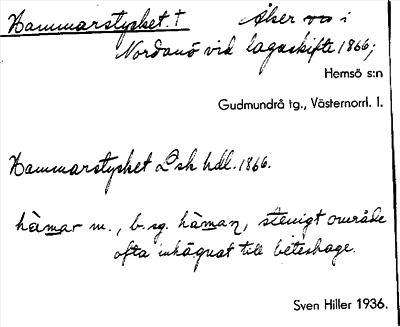 Hammarstycket † Åker m m i
Nordanö vid lagaskifte 1866;
Hemsö s:n
Gudmundrå tg., Västernorrl. l.
Hammarstycket Lsk hdl. 1866.
hàmar m., b. sg. hàman, stenigt område
ofta inhägnat till beteshage.
Sven Hiller 1936.